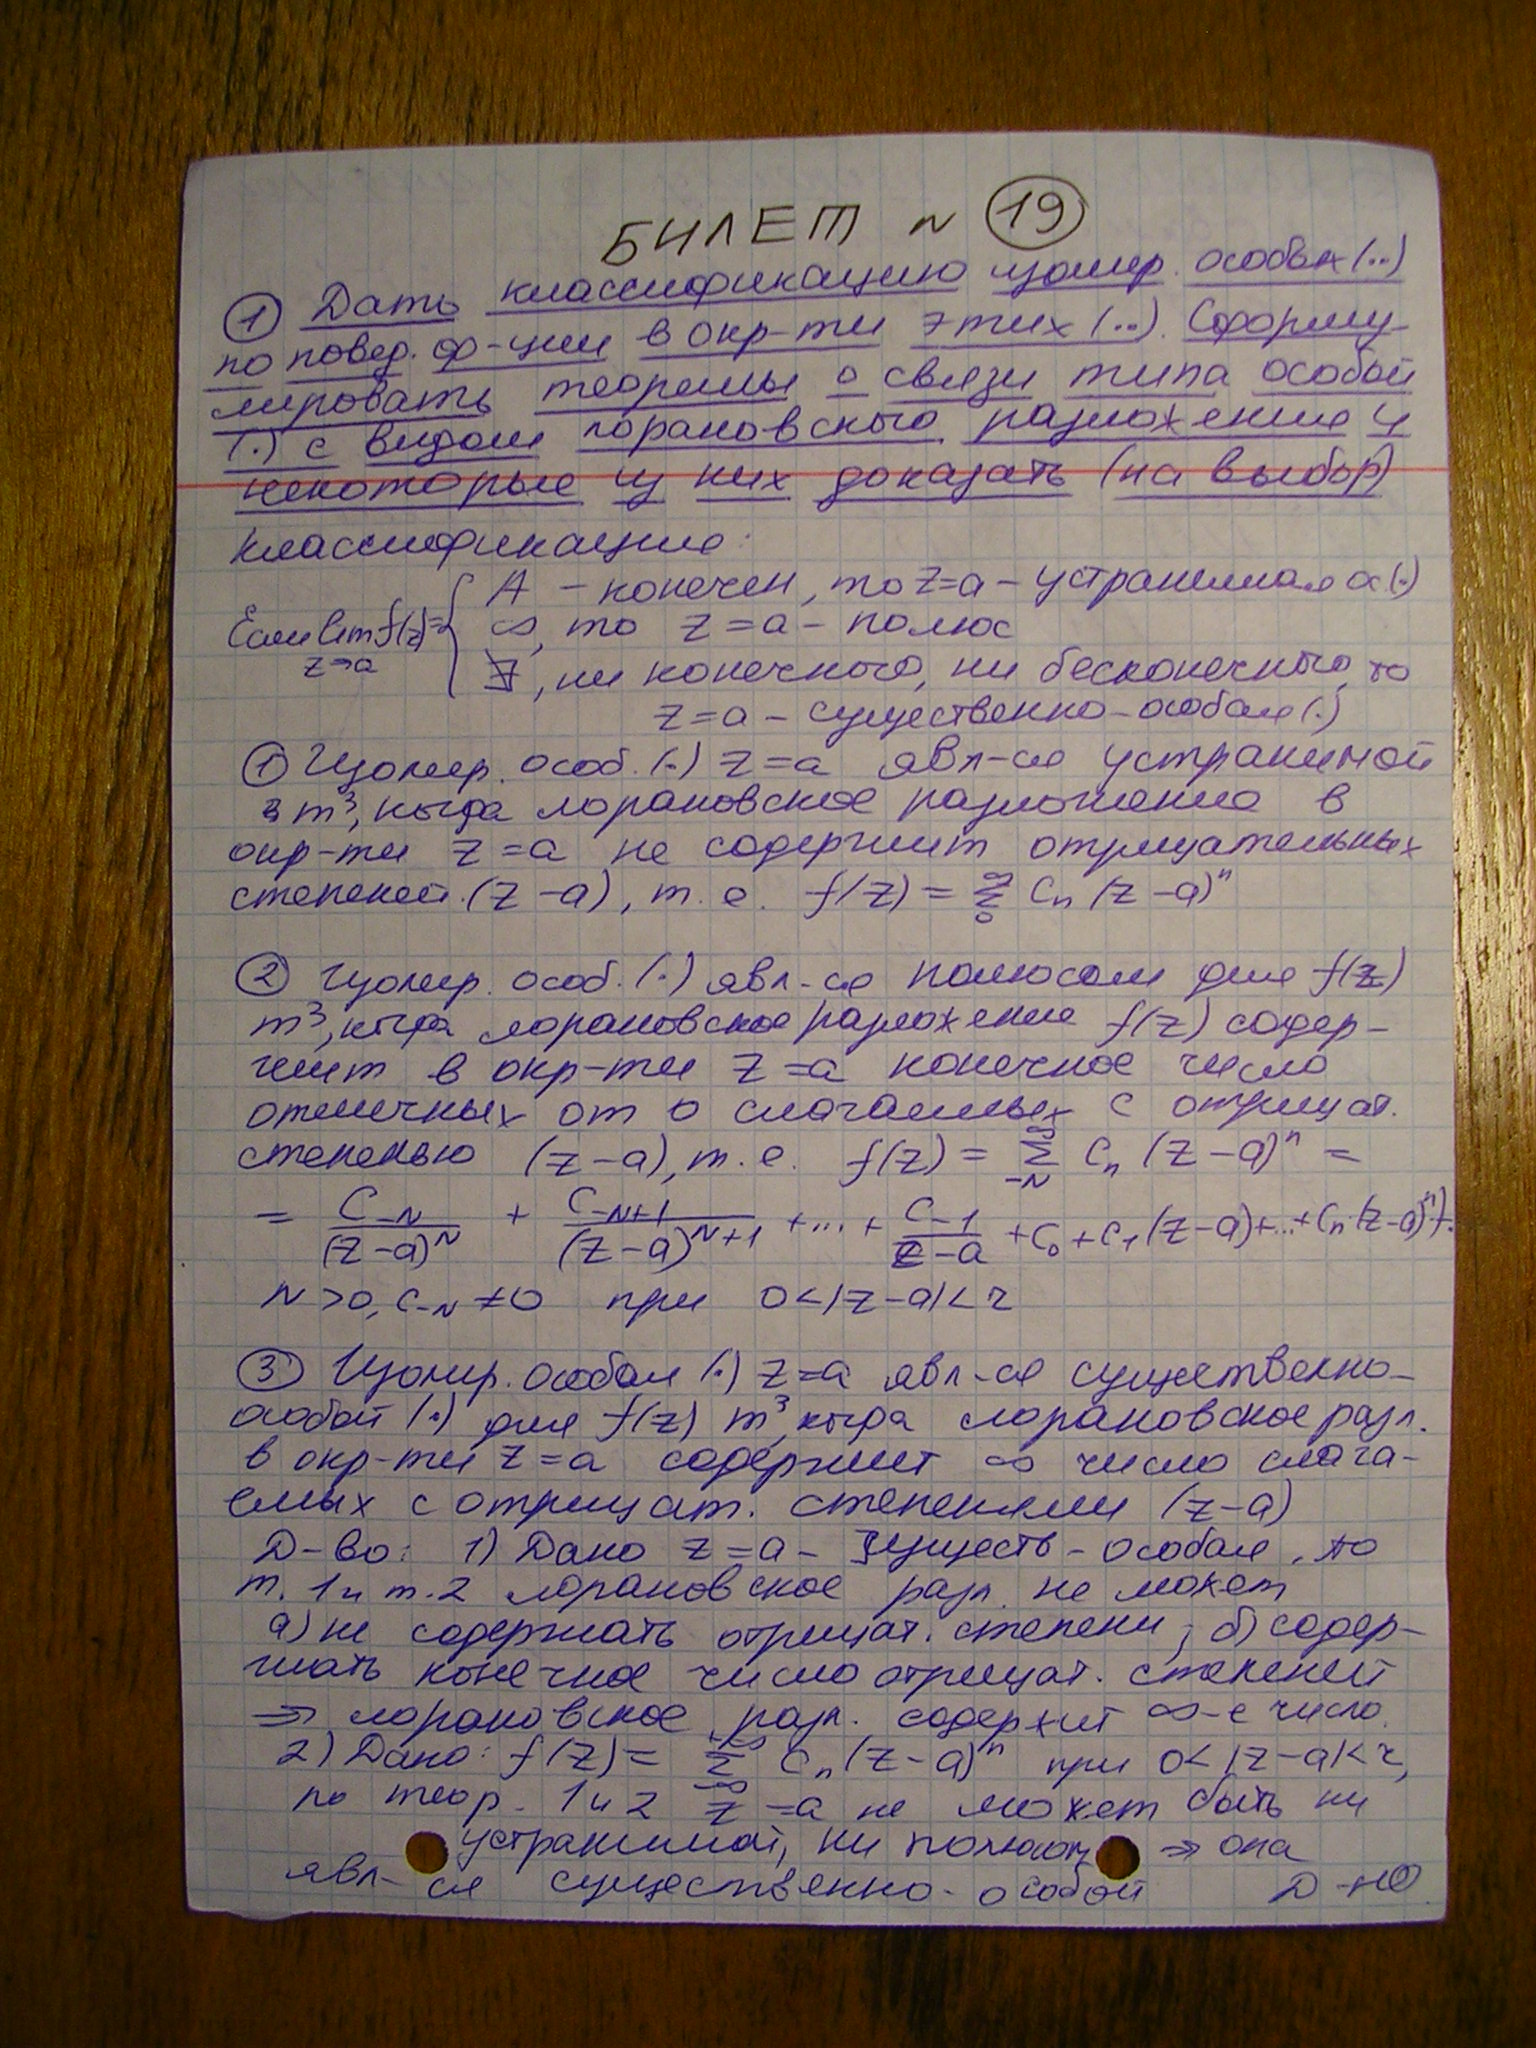 БИЛЕТ N 19
① Дать классификацию изолир. особых (..)
по повед. ф-ции в окр-ти этих (..). Сформу-
лировать теоремы о связи типа особой
(.) с видом лорановского разложения и
некоторые из них доказать (на выбор)
Классификация:
Если lim f(z) = { A – конечен, то z=a – устранимая о(.)
z→a
∞, то z=a – полюс
∄, ни конечного, ни бесконечного, то
z=a – существенно-особая (.)
① Изолир. особ. (.) z=a явл-ся устранимой
тз, когда лорановское разложение в
окр-ти z=a не содержит отрицательных
степеней (z-a), т.е. f(z) = ∞Σ0 Cn (z-a)^n
② Изолир. особ. (.) явл-ся полюсом для f(z)
тз, когда лорановское разложение f(z) содер-
жит в окр-ти z=a конечное число
отличных от 0 слагаемых с отрицат.
степенью (z-a), т.е. f(z) = ∞Σ-N Cn (z-a)^n =
= C-N/(z-a)^N + C-N+1/(z-a)^N+1 + ... + C-1/z-a + C0 + C1(z-a)+...+Cn(z-a)^n+.
N>0, C-N ≠ 0 при 0<|z-a|<r
③ Изолир. особая (.) z=a явл-ся существенно-
особой (.) для f(z) тз, когда лорановское разл.
в окр-ти z=a содержит ∞ число слага-
емых с отрицат. степенями (z-a)
Д-во: 1) Дано z=a – существ-особая, по
т.1 и т.2 лорановское разл. не может
а) не содержать отрицат. степени; б) содер-
жать конечное число отрицат. степеней
⇒ лорановское разл. содержит ∞-е число.
2) Дано: f(z) = +∞Σ-∞ Cn (z-a)^n при 0<|z-a|<r,
по теор. 1 и 2 z=a не может быть ни
устранимой, ни полюсом ⇒ она
явл-ся существенно-особой Д-но